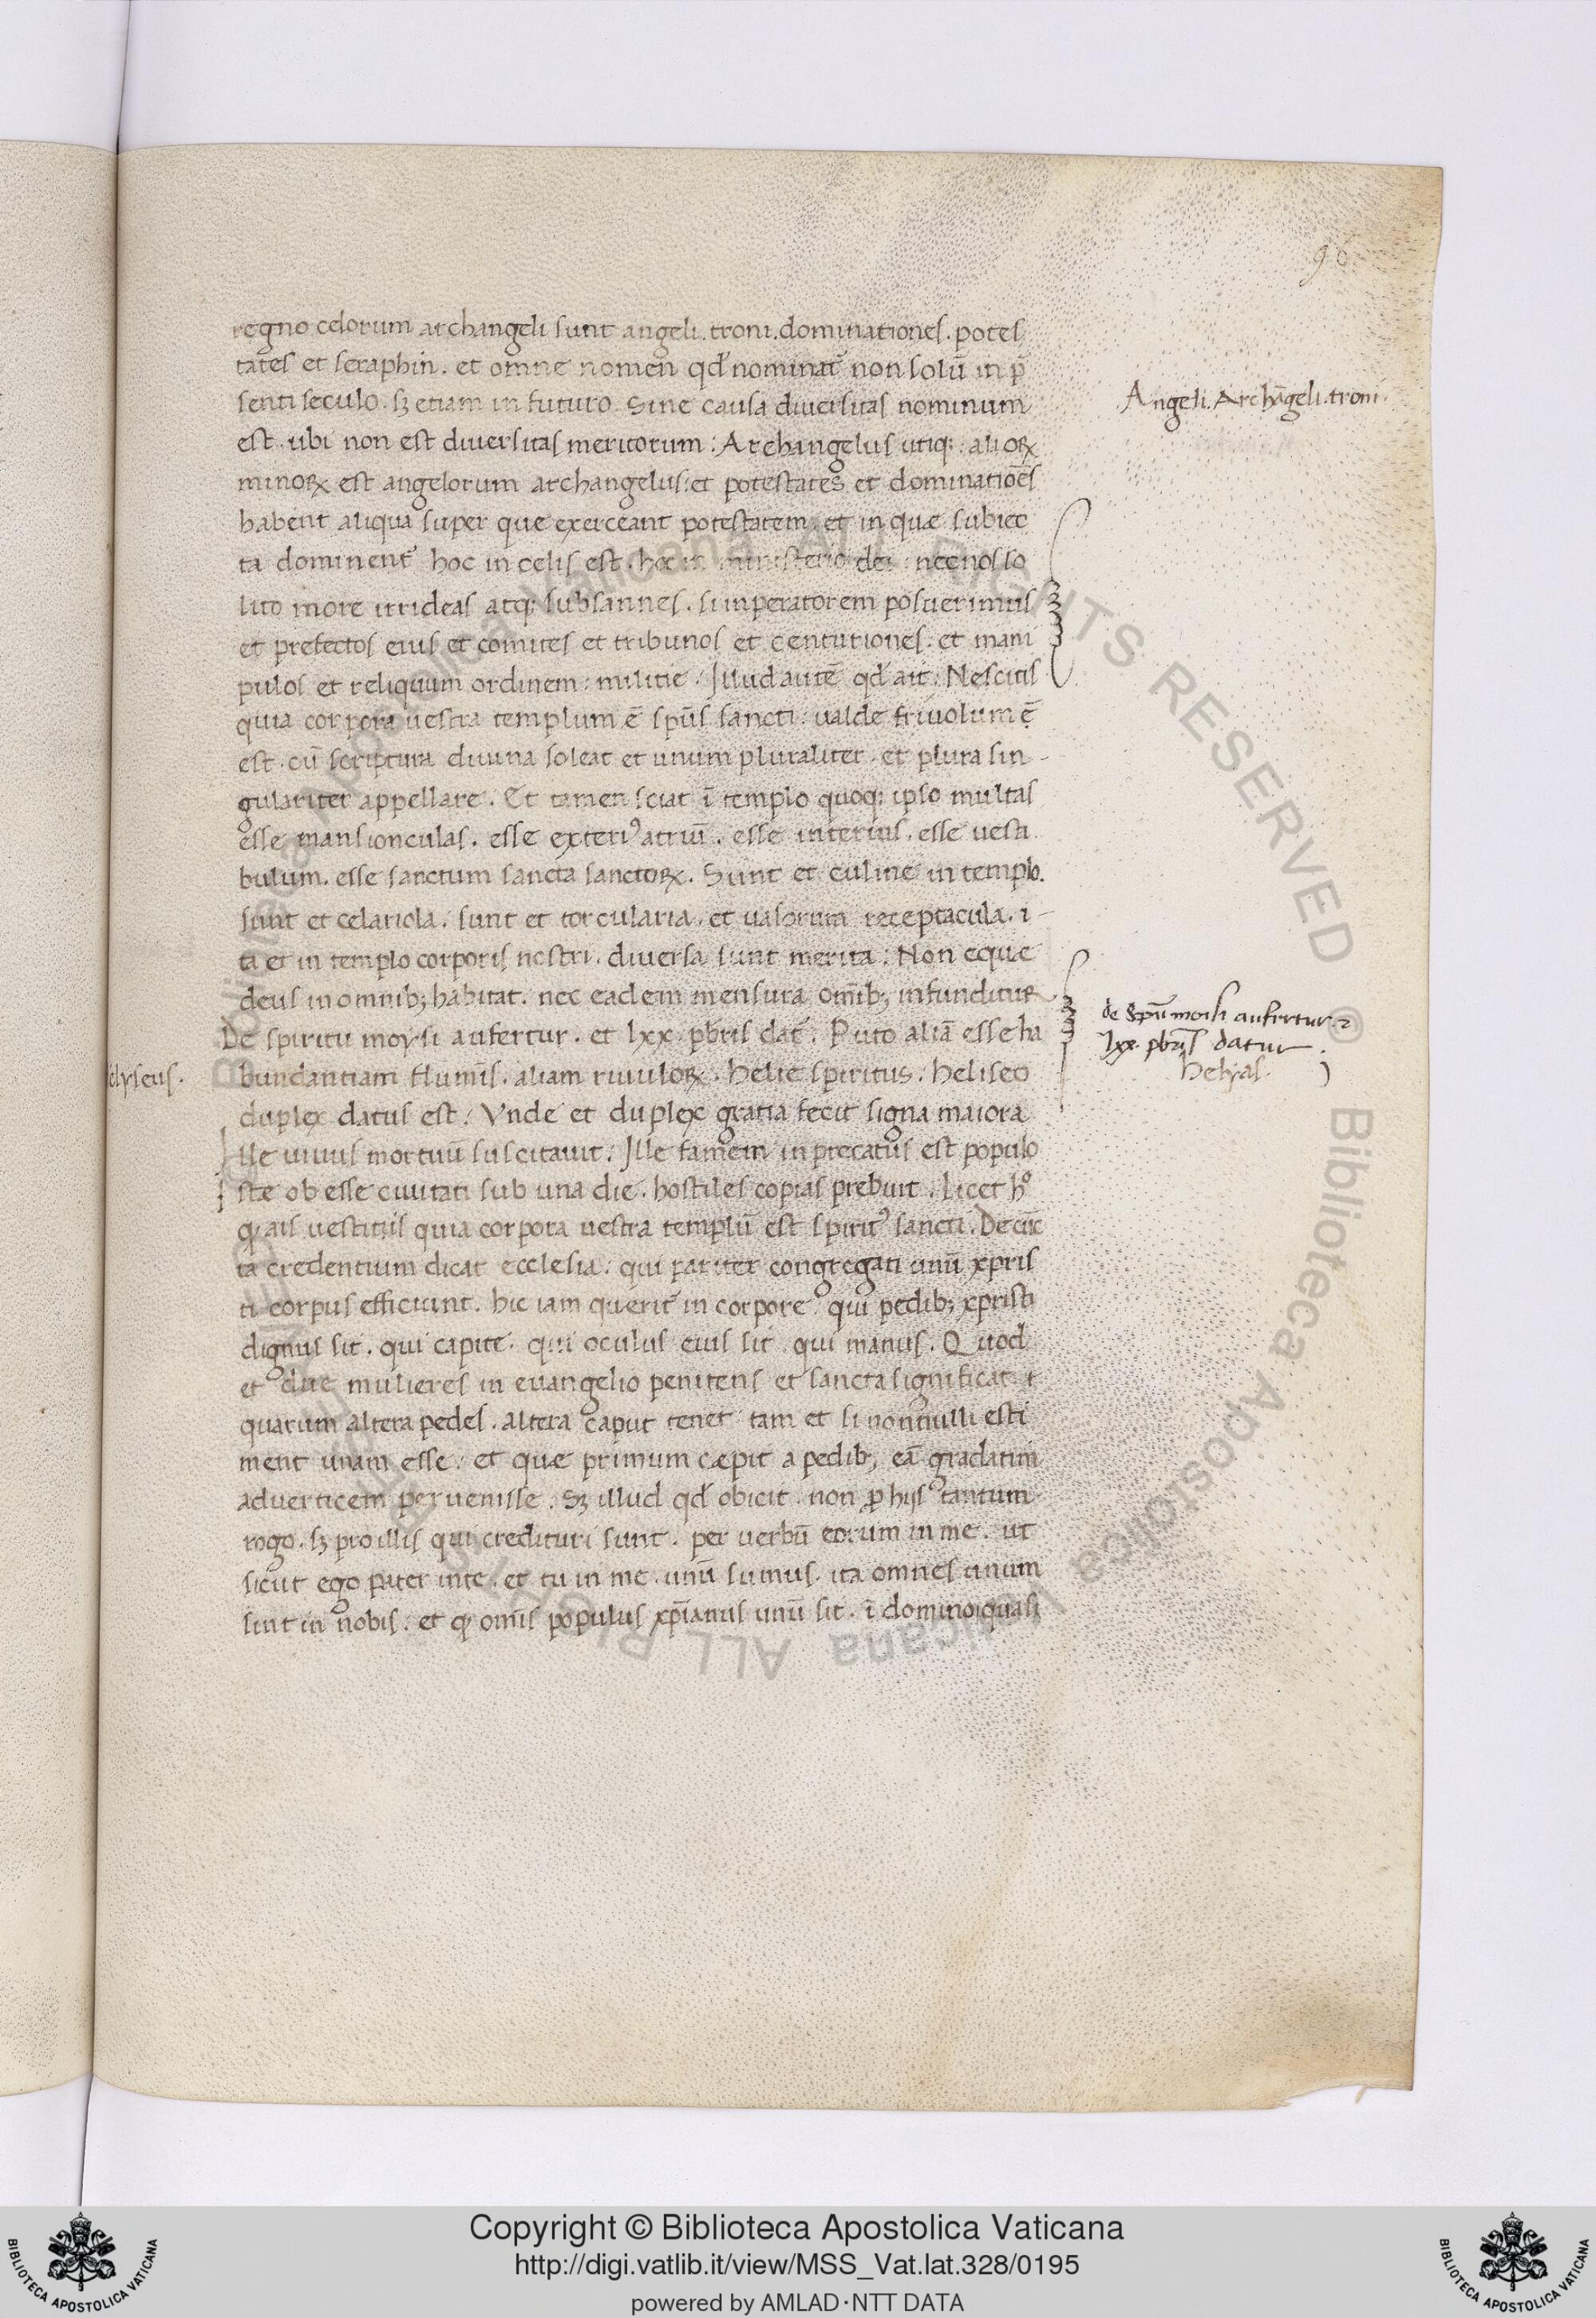 96
regno celorum archangeli sunt angeli. troni. dominationes. potes
tates et seraphin. et omne nomen qd̓ nominat̓ non solū in p̄
senti seculo. sꝫ etiam in futuro. Sine causa diversitas nominum
est. ubi non est diversitas meritorum: Archangelus utiqꝫ alioꝝ
minoꝝ est angelorum archangelus: et potestates et dominatiōes
habent aliqua super que exerceant potestatem. et in quæ subiec
ta dominent̓ hoc in celis est. hoc in ministerio dei. nec nos so
lito more irrideas atqꝫ subsannes. si inperatorem posuerimus
et prefectos eius et comites et tribunos et centuriones. et mani
pulos et reliquum ordinem: militie. Illud autē qd̓ ait: Nescitis
quia corpora uestra templum ē spūs sancti. ualde friuolum ē
est. cū scriptura diuina soleat et unum pluraliter. et plura sin-
gulariter appellare. Et tamen sciat ī templo quoqꝫ ipso multas
esse mansionculas. esse exteriꝰ atriū. esse interius. esse uesti
bulum. esse sanctum sancta sanctoꝝ. Sunt et culine in templo.
sunt et celariola. sunt et torcularia. et uasorum receptacula. i-
ta et in templo corporis nostri. diuersa sunt merita: Non eque
deus in omnibꝫ habitat. nec eadem mensura om̄ibꝫ infunditur
De spiritu moysi aufertur. et lxx. pb̄ris dat̓. Puto aliā esse ha
bundantiam flumīs. aliam riuuloꝝ. Helie spiritus. heliseo
duplex datus est. Vnde et duplex gratia fecit signa maiora
Ille uiuus mortuū suscitauit. Ille famem inprecatus est populo
iste ob esse ciuitati sub una die. hostiles copias prebuit. Licet h̊
ꝙ ais uestitis quia corpora uestra templū est spiritꝰ sancti. De cūc
ta credentium dicat ecclesia: qui pariter congregati unū xpris
ti corpus efficiunt. hic iam querit̓ in corpore. qui pedibꝫ xpristi
dignus sit. qui capite. qui oculus eius sit. qui manus. Quod
et due mulieres in euangelio penitens et sancta significat
quarum altera pedes. altera caput tenet tam et si nonnulli esti
ment unam esse. et quæ primum cæpit a pedibꝫ, eā gradatim
ad uerticem peruenisse. Sꝫ illud qd̓ obicit. non ꝓ hijs tantum
rogo. sꝫ pro illis qui credituri sunt. per uerbū eorum in me. ut
sicut ego pater in te. et tu in me. unū sumus. ita omnes unum
sint in nobis. et ꝙ om̄is populus xp̄ianus unū sit. ī domino quasi
Angeli. Archāgeli. troni.
de Spū moisi aufertur
lxx. pb̄ris datur
Helyas.
elyseus.
© Biblioteca Apostolica Vaticana ALL RIGHTS RESERVED
Copyright © Biblioteca Apostolica Vaticana
http://digi.vatlib.it/view/MSS_Vat.lat.328/0195
powered by AMLAD·NTT DATA
BIBLIOTECA APOSTOLICA VATICANA
BIBLIOTECA APOSTOLICA VATICANA